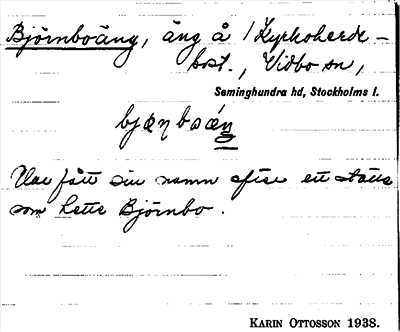 Björnboäng, äng å Kyrkoherde-
bost., Vidbo sn,
Seminghundra hd, Stockholms l.
Har fått sin namn efter ett ställe
som hette Björnbo.
KARIN OTTOSSON 1938.